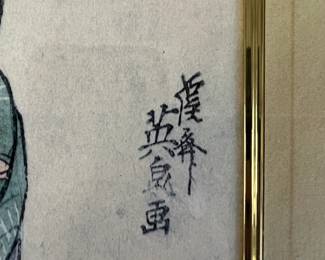 渓斎
英泉画